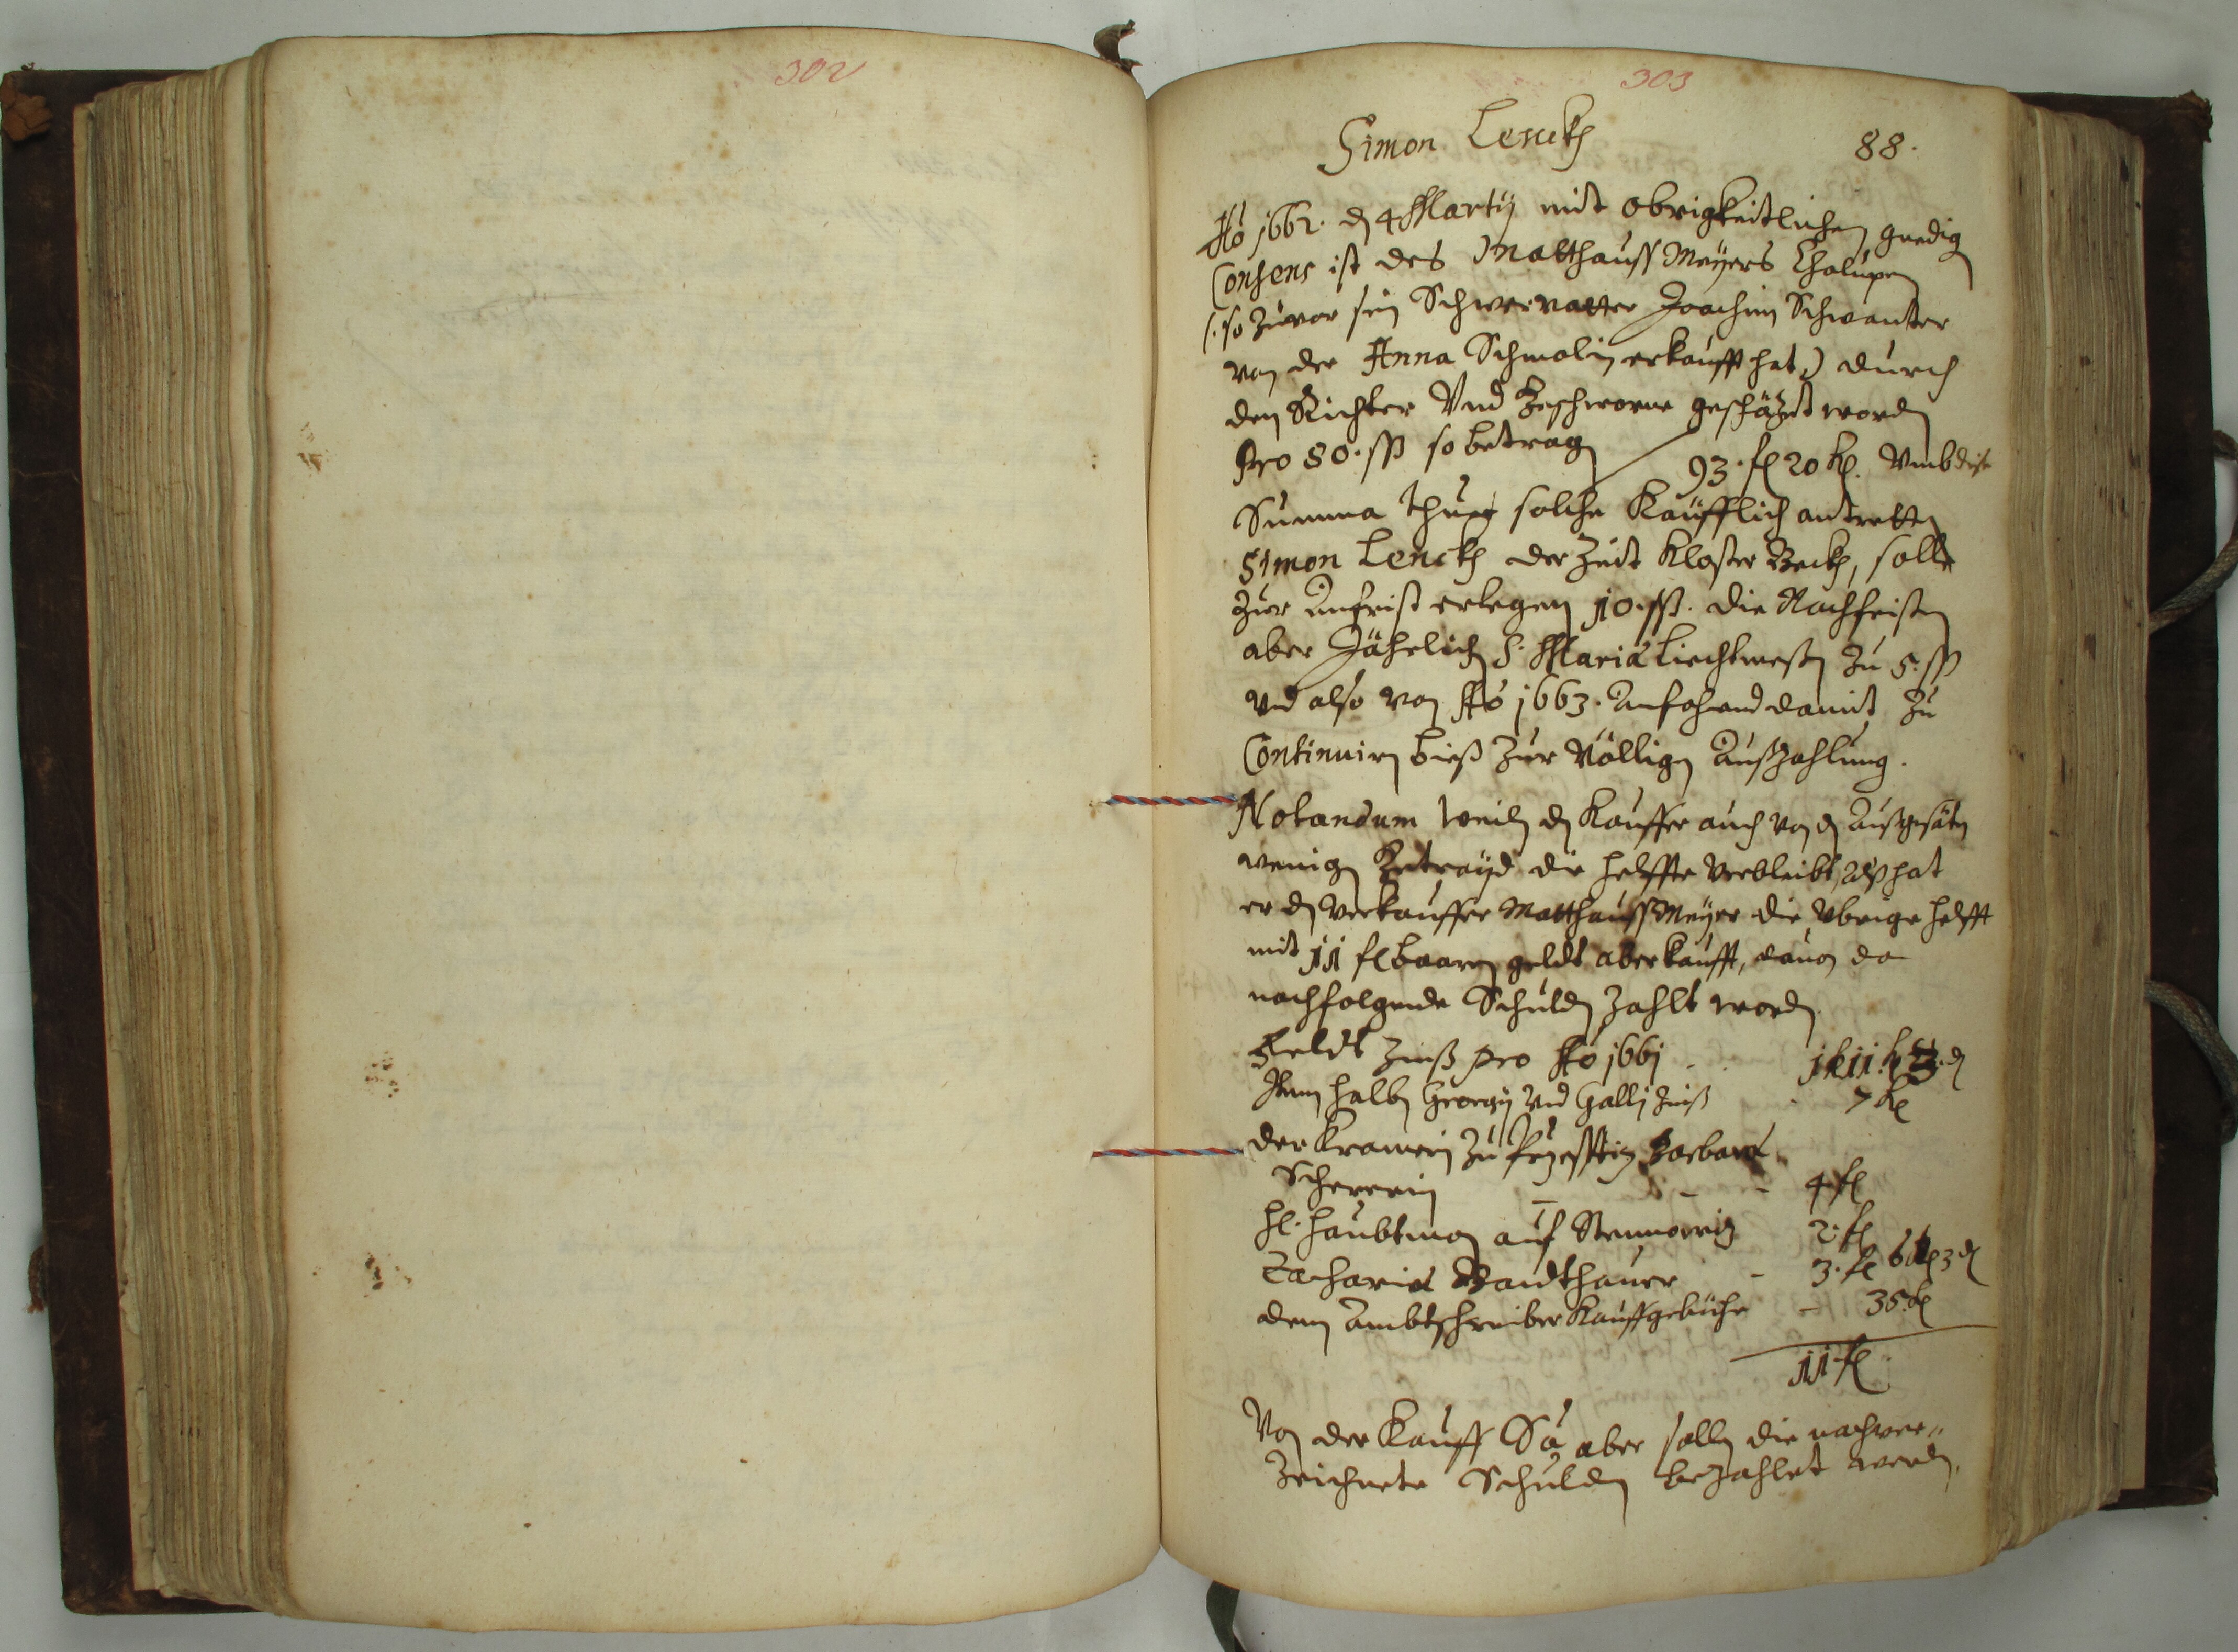 302
303
Simon Lenckh
88.
Ao 1662. dn 4 Martij mit obrigkeitlichen gnedig
Consens ist des Matthauß Meÿers Chalupen
(: so zuvor sein Schwervatter Joachim Schwanter
von der Anna Schmolin erkaufft hat,) durch
den Richter Vnd Geschworne geschätzt wordn
Pro 80. ßß so betragn
93. fl 20 kr. Vmb diese
Summa thuet solche Kaüfflich antretten
Simon Lenckh der Zeit Kloster Beckh, solle
zur Anfrist erlegen 10. ßß. die Nachfristen
aber Jährlich S. Maria Liechtmeßen zu 5. ßß
Vnd also von Ao 1663. Anfahend damit zu
Continuirn bieß zur Völligen Außzahlung.
Notandum weiln dn Kauffer auch von dn Außgesäten
wenigen Getraÿd die helffte Verbleibt, alß hat
er dn Verkauffer Matthauß Meÿer die Vbrige helfft
mit 11 fl baaren geldt aberkaufft, dauon da
nachfolgende Schulden zahlt wordn
Geldt Zinß pro Ao 1661 . .
Item halben Georgy Vnd Gally Zinß . 7 kr
der Kramerin zu Barbara
Schererin - - - 4. fl
Hl. Haubtman auf 2. fl
Zacharia - 3. fl 6 kr 3 d
dem Ambtschreiber Kauffgebühr - 35. kr
11. fl
Von der Kauff Sa aber sollen die nachver„
zeichnete Schulden bezahlet werden.